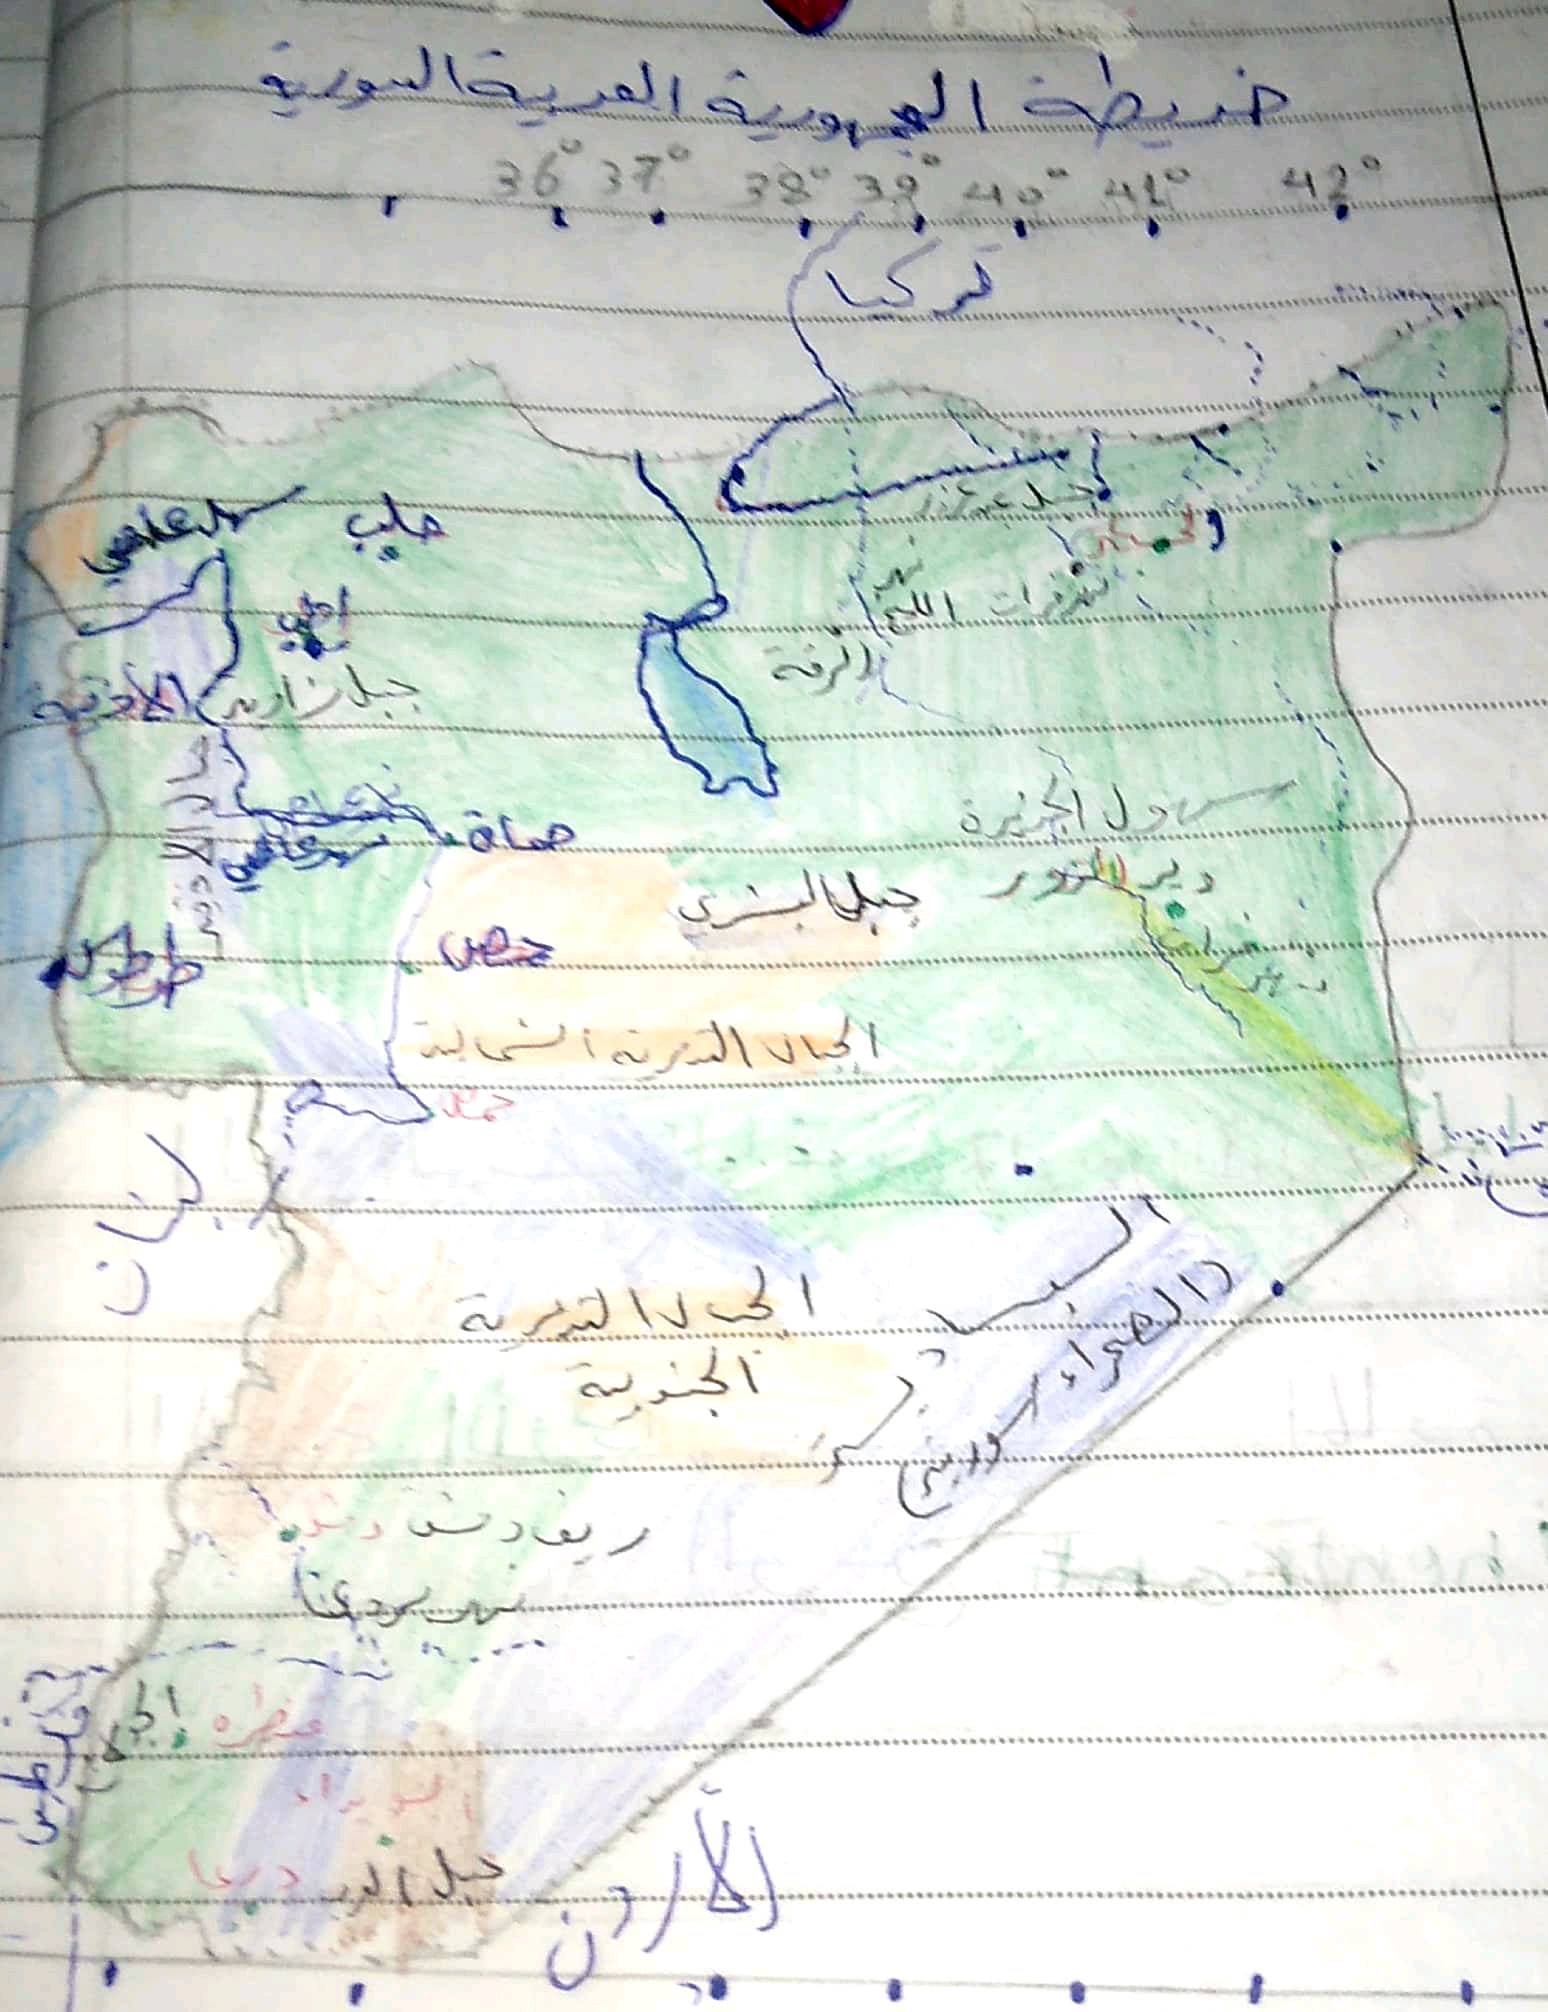 خريطة الجمهورية العربية السورية
36° 37° 38° 39° 40° 41° 42°
تركيا
حلب
جبل عبد العزيز
ادلب
نهر
الرقة
اللاذقية
جبل الزاوية
حماة
سهول الجزيرة
نهر العاصي
جبل البشري
دير الزور
طرطوس
حمص
نهر الفرات
الجبال التدمرية الشمالية
حمص
لبنان
الجبال التدمرية
الجنوبية
(الصحراء السورية)
ريف دمشق دمشق
نهر بردى
قنيطرة
السويداء
جبل العرب
درعا
الأردن